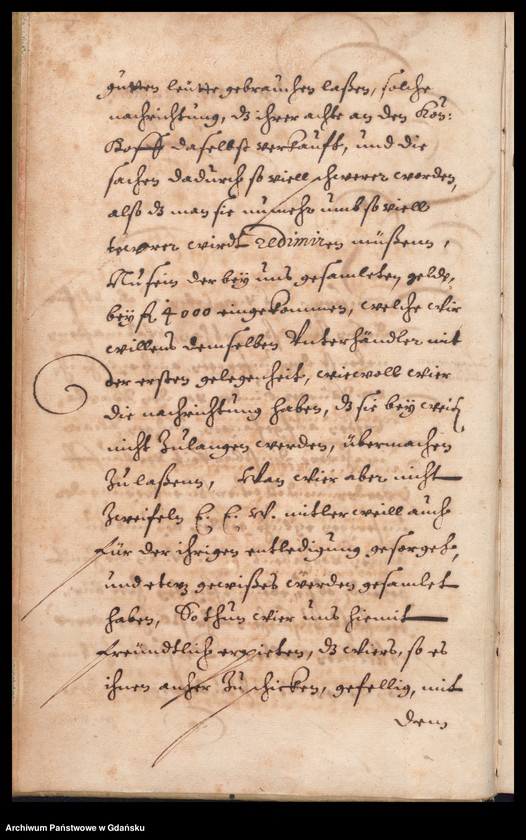 gutten leutte gebrauchen laßen, solche
nachrichtung, dz ihrer achte an den Kön:
Hoff daselbst verkaufft, und die
sachen dadurch so viell schwerer worden,
also dz man sie nunmehr umb so viell
tewrer wirdt redimiren müßenn,
Nu sein der bey uns gesamleten, gelde,
bey fl 4000 eingekommen, welche wir
willens demselben Unterhändler mit
der ersten gelegenheit, wiewoll wier
die nachrichtung haben, dz sie bey
nicht Zulangen werden, übermachen
Zulaßenn, Wan wier aber nicht
Zweifeln E. E. W. mitlerweill auch
für der ihrigen entledigung gesorget,
und etwz gewißes werden gesamlet
haben, So thun wier uns hiemit
freündtlich erpieten, dz wiers, so es
ihnen anher Zuschicken, gefellig, mit
dem
Archiwum Państwowe w Gdańsku